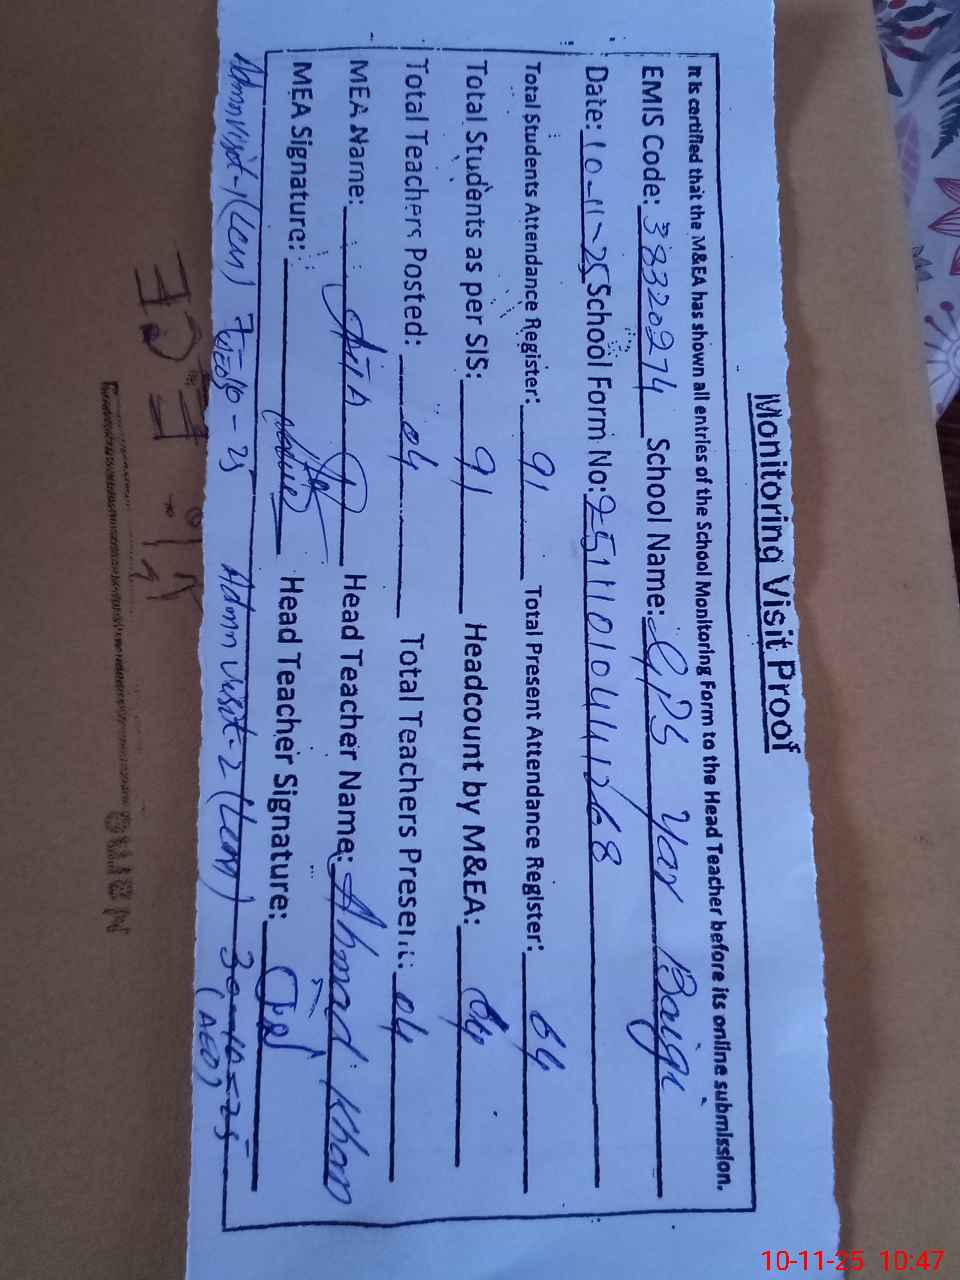 Monitoring Visit Proof
It is certified that the M&EA has shown all entries of the School Monitoring Form to the Head Teacher before its online submission.
EMIS Code: 38320274 School Name: GPS Yar Baig
Date: 10-11-25 School Form No: 2511101041268
Total Students Attendance Register: 91 Total Present Attendance Register: 64
Total Students as per SIS: 91 Headcount by M&EA: 64
Total Teachers Posted: 04 Total Teachers Present: 04
MEA Name: Head Teacher Name: Ahmad Khan
MEA Signature: Head Teacher Signature:
Admn Visit-1 (Len) Admn Visit-2 (Len) 30-10-25
(AEO)
10-11-25 10:47